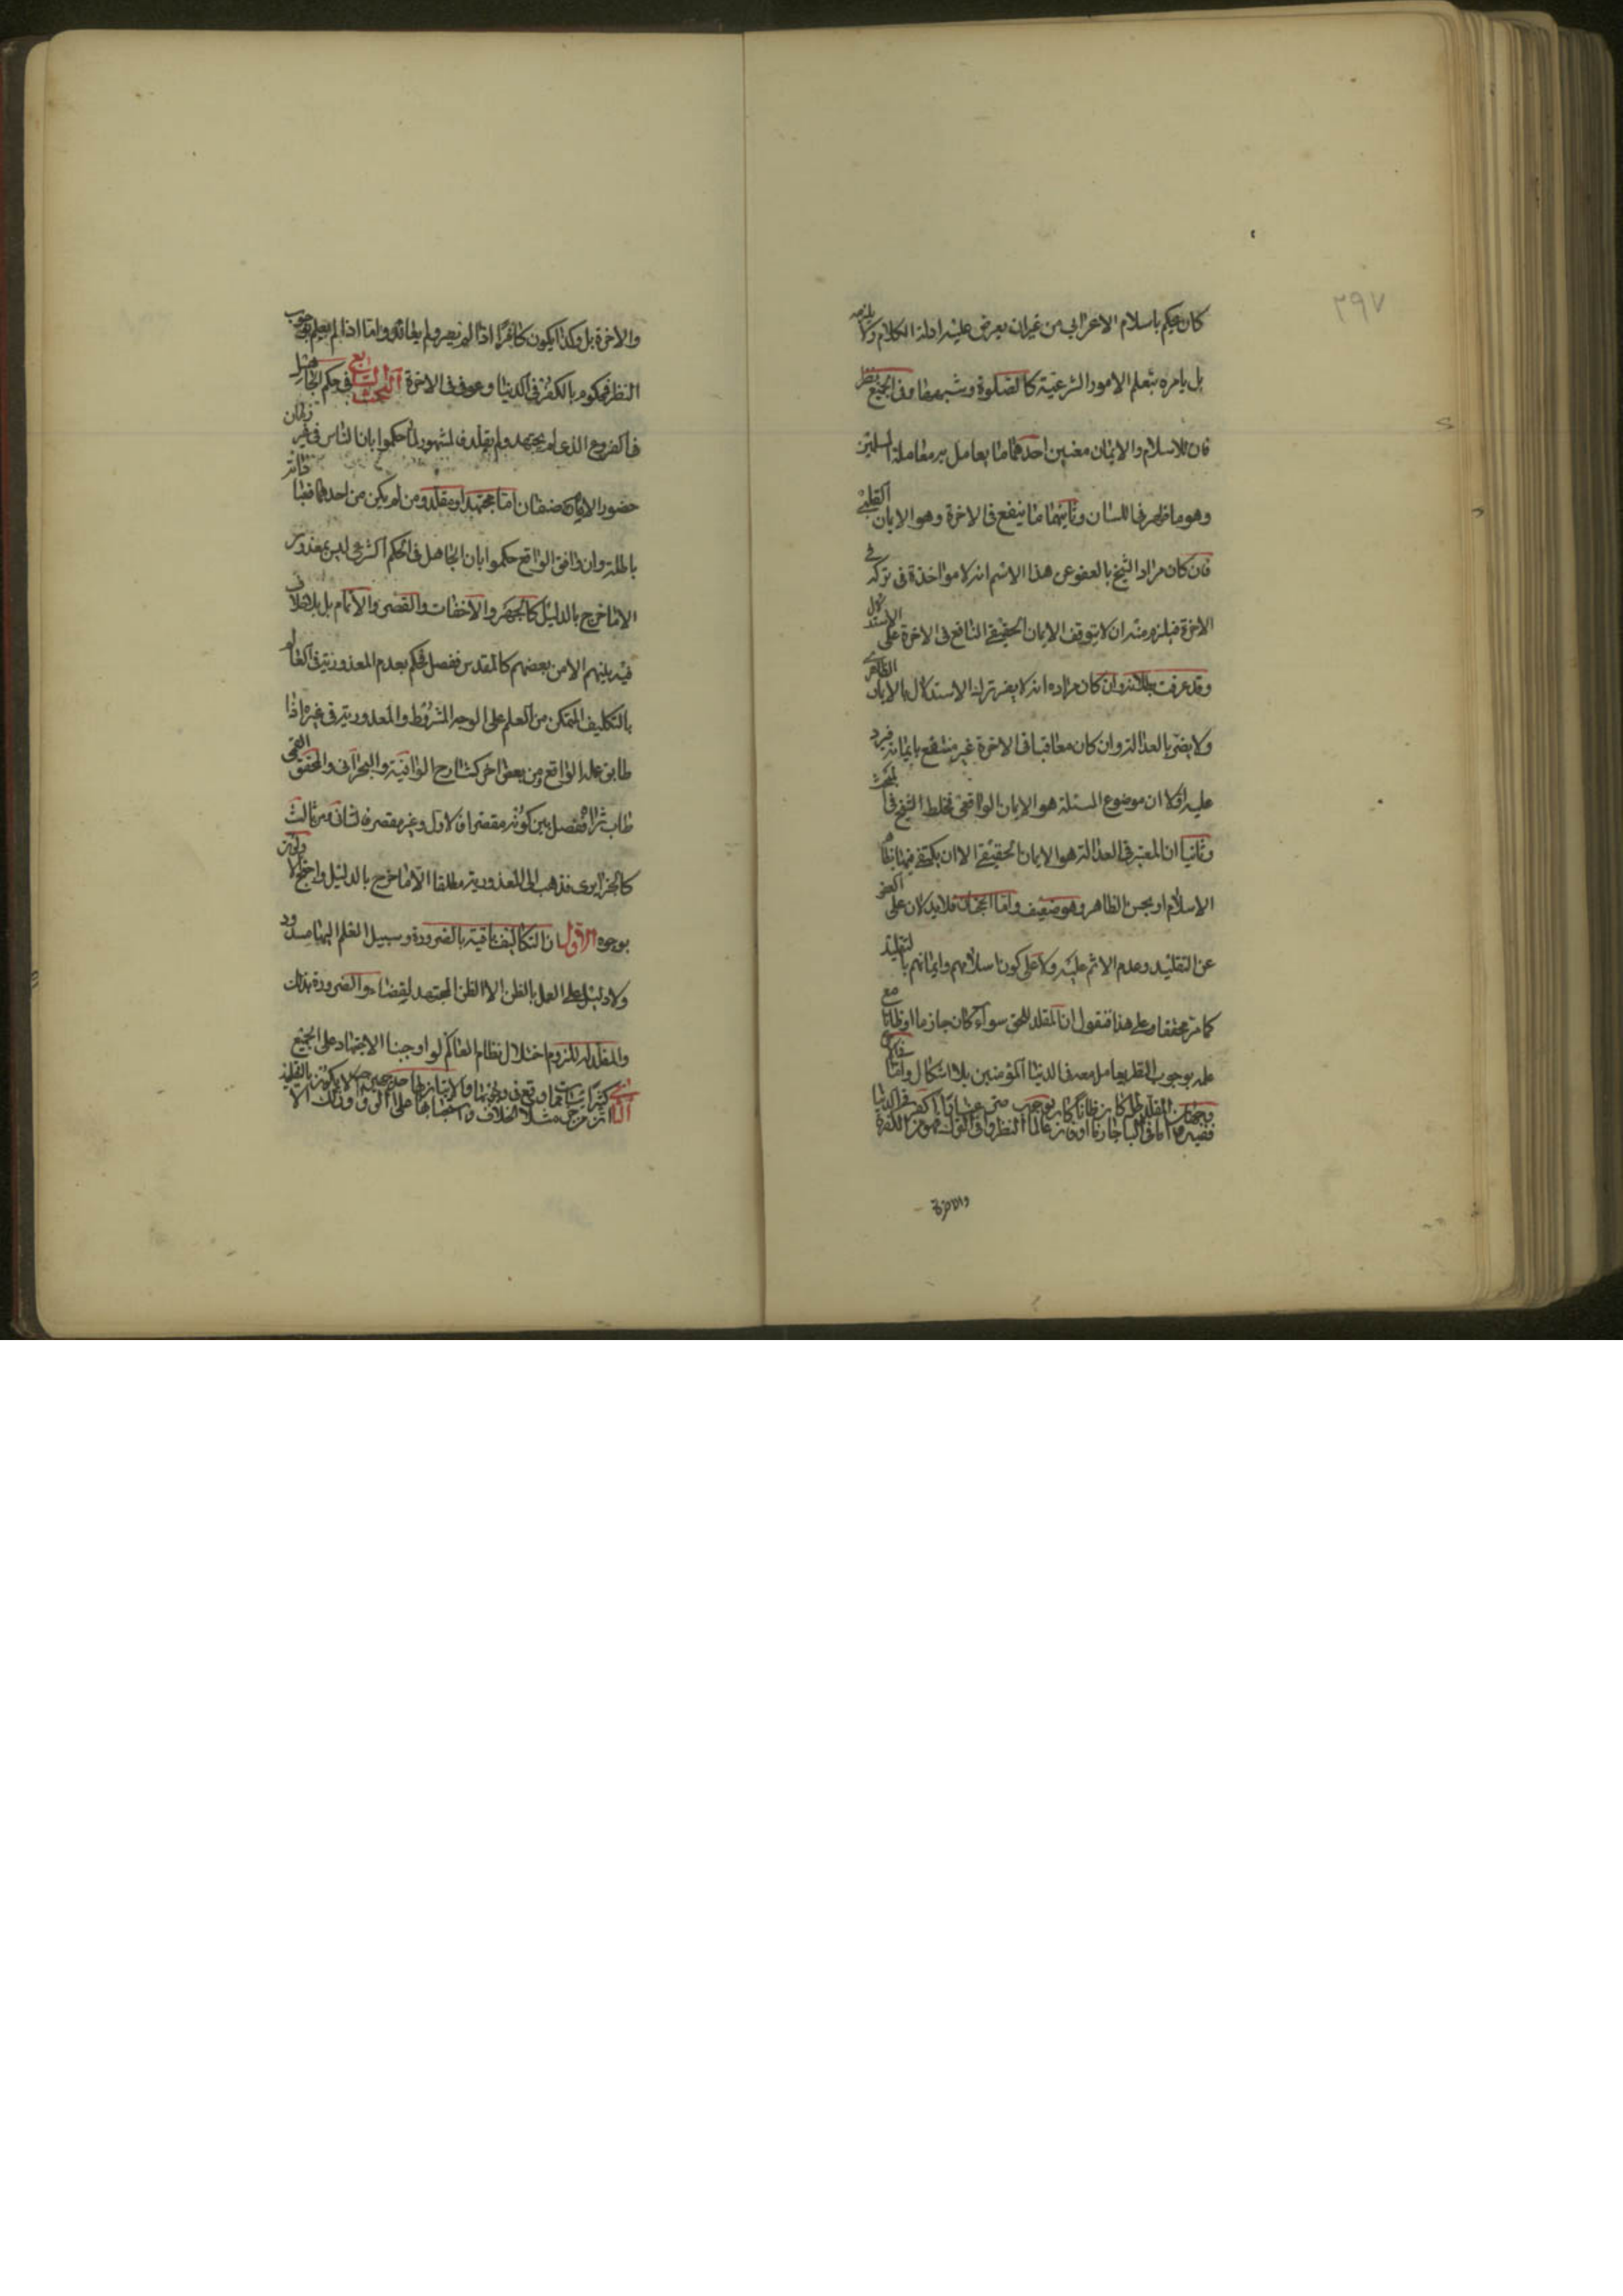 ٣٩٧
كان يحكم باسلام الاعرابي من غير ان يعرض عليه ادلة الكلام ولا يلزمه
بل يامره بتعلم الامور الشرعية كالصلوة وشبهها وفى الجميع نظر
فان للاسلام والايمان معنيين احدهما ما يعامل به معاملة المسلمين
وهو ما ظهر فى اللسان وثانيهما ما ينفع فى الاخرة وهو الايمان القلبى
فان كان مراد الشيخ بالعفو عن هذا الاثم انه لا مواخذة فى تركه فى
الاخرة فيلزم منه ان لا يتوقف الايمان الحقيقى النافع فى الاخرة على الاستدلال
وقد عرفت بطلانه وان كان مراده انه لا يضر ترك الاستدلال بالايمان الظاهرى
ولا يضر بالعدالة وان كان معاقبا فى الاخرة غير منتفع بايمانه فيرد
عليه اولا ان موضوع المسئلة هو الايمان الواقعى فخلط الشيخ فى المبحث
وثانيا ان المعتبر فى العدالة هو الايمان الحقيقى الا ان يكتفى فيها بظاهر
الاسلام او بحسن الظاهر وهو ضعيف واما فلا يدلان على العفو
عن التقليد وعدم الاثم عليه ولا على كون اسلامهم وايمانهم بالتقليد
كما مر محققا وعلى هذا فنقول ان المقلد للحق سواء كان جازما او ظانا مع
علمه بوجوب النظر يعامل معه فى الدنيا المؤمنين بلا اشكال واما
والاخرة
والاخرة بل وكذا يكون كافرا اذا لم يصر ولم يعاند واما اذا لم يعلم بوجوب
النظر فمحكوم بالكفر فى الدنيا وعوفى فى الاخرة المبحث السابع فى حكم الجاهل
فى الفروع الذى لم يجتهد ولم يقلد فالمشهور لما حكموا بان الناس فى غير زمان
حضور الامام صنفان اما مجتهد او مقلد ومن لم يكن من احدهما فعباداته
باطلة وان وافق الواقع حكموا بان الجاهل فى الحكم الشرعى ليس بمعذور
الا ما خرج بالدليل كالجهر والاخفات والقصر والاتمام بل بلا خلاف
فيه بينهم الا من بعضهم كالمقدس ففصل فحكم بعدم المعذورية فى العالم
بالتكليف المتمكن من العلم على الوجه المشروط والمعذورية فى غيره اذا
طابق عمله الواقع ومن بعض اخر كشارح الوافية والبحرانى والمحقق القمى
طاب ثراه ففصل بين كونه مقصرا فالاول وغير مقصر فالثانى ومن ثالث
كالجزايرى فذهب الى المعذورية مطلقا الا ما خرج بالدليل واحتج الاولون
بوجوه الاول ان التكاليف باقية بالضرورة وسبيل العلم اليها مسدود
ولا دليل على العمل بالظن الا الظن المجتهد لقضاء الضرورة بذلك
والمقلد له للزوم اختلال نظام العالم لو اوجبنا الاجتهاد على الجميع